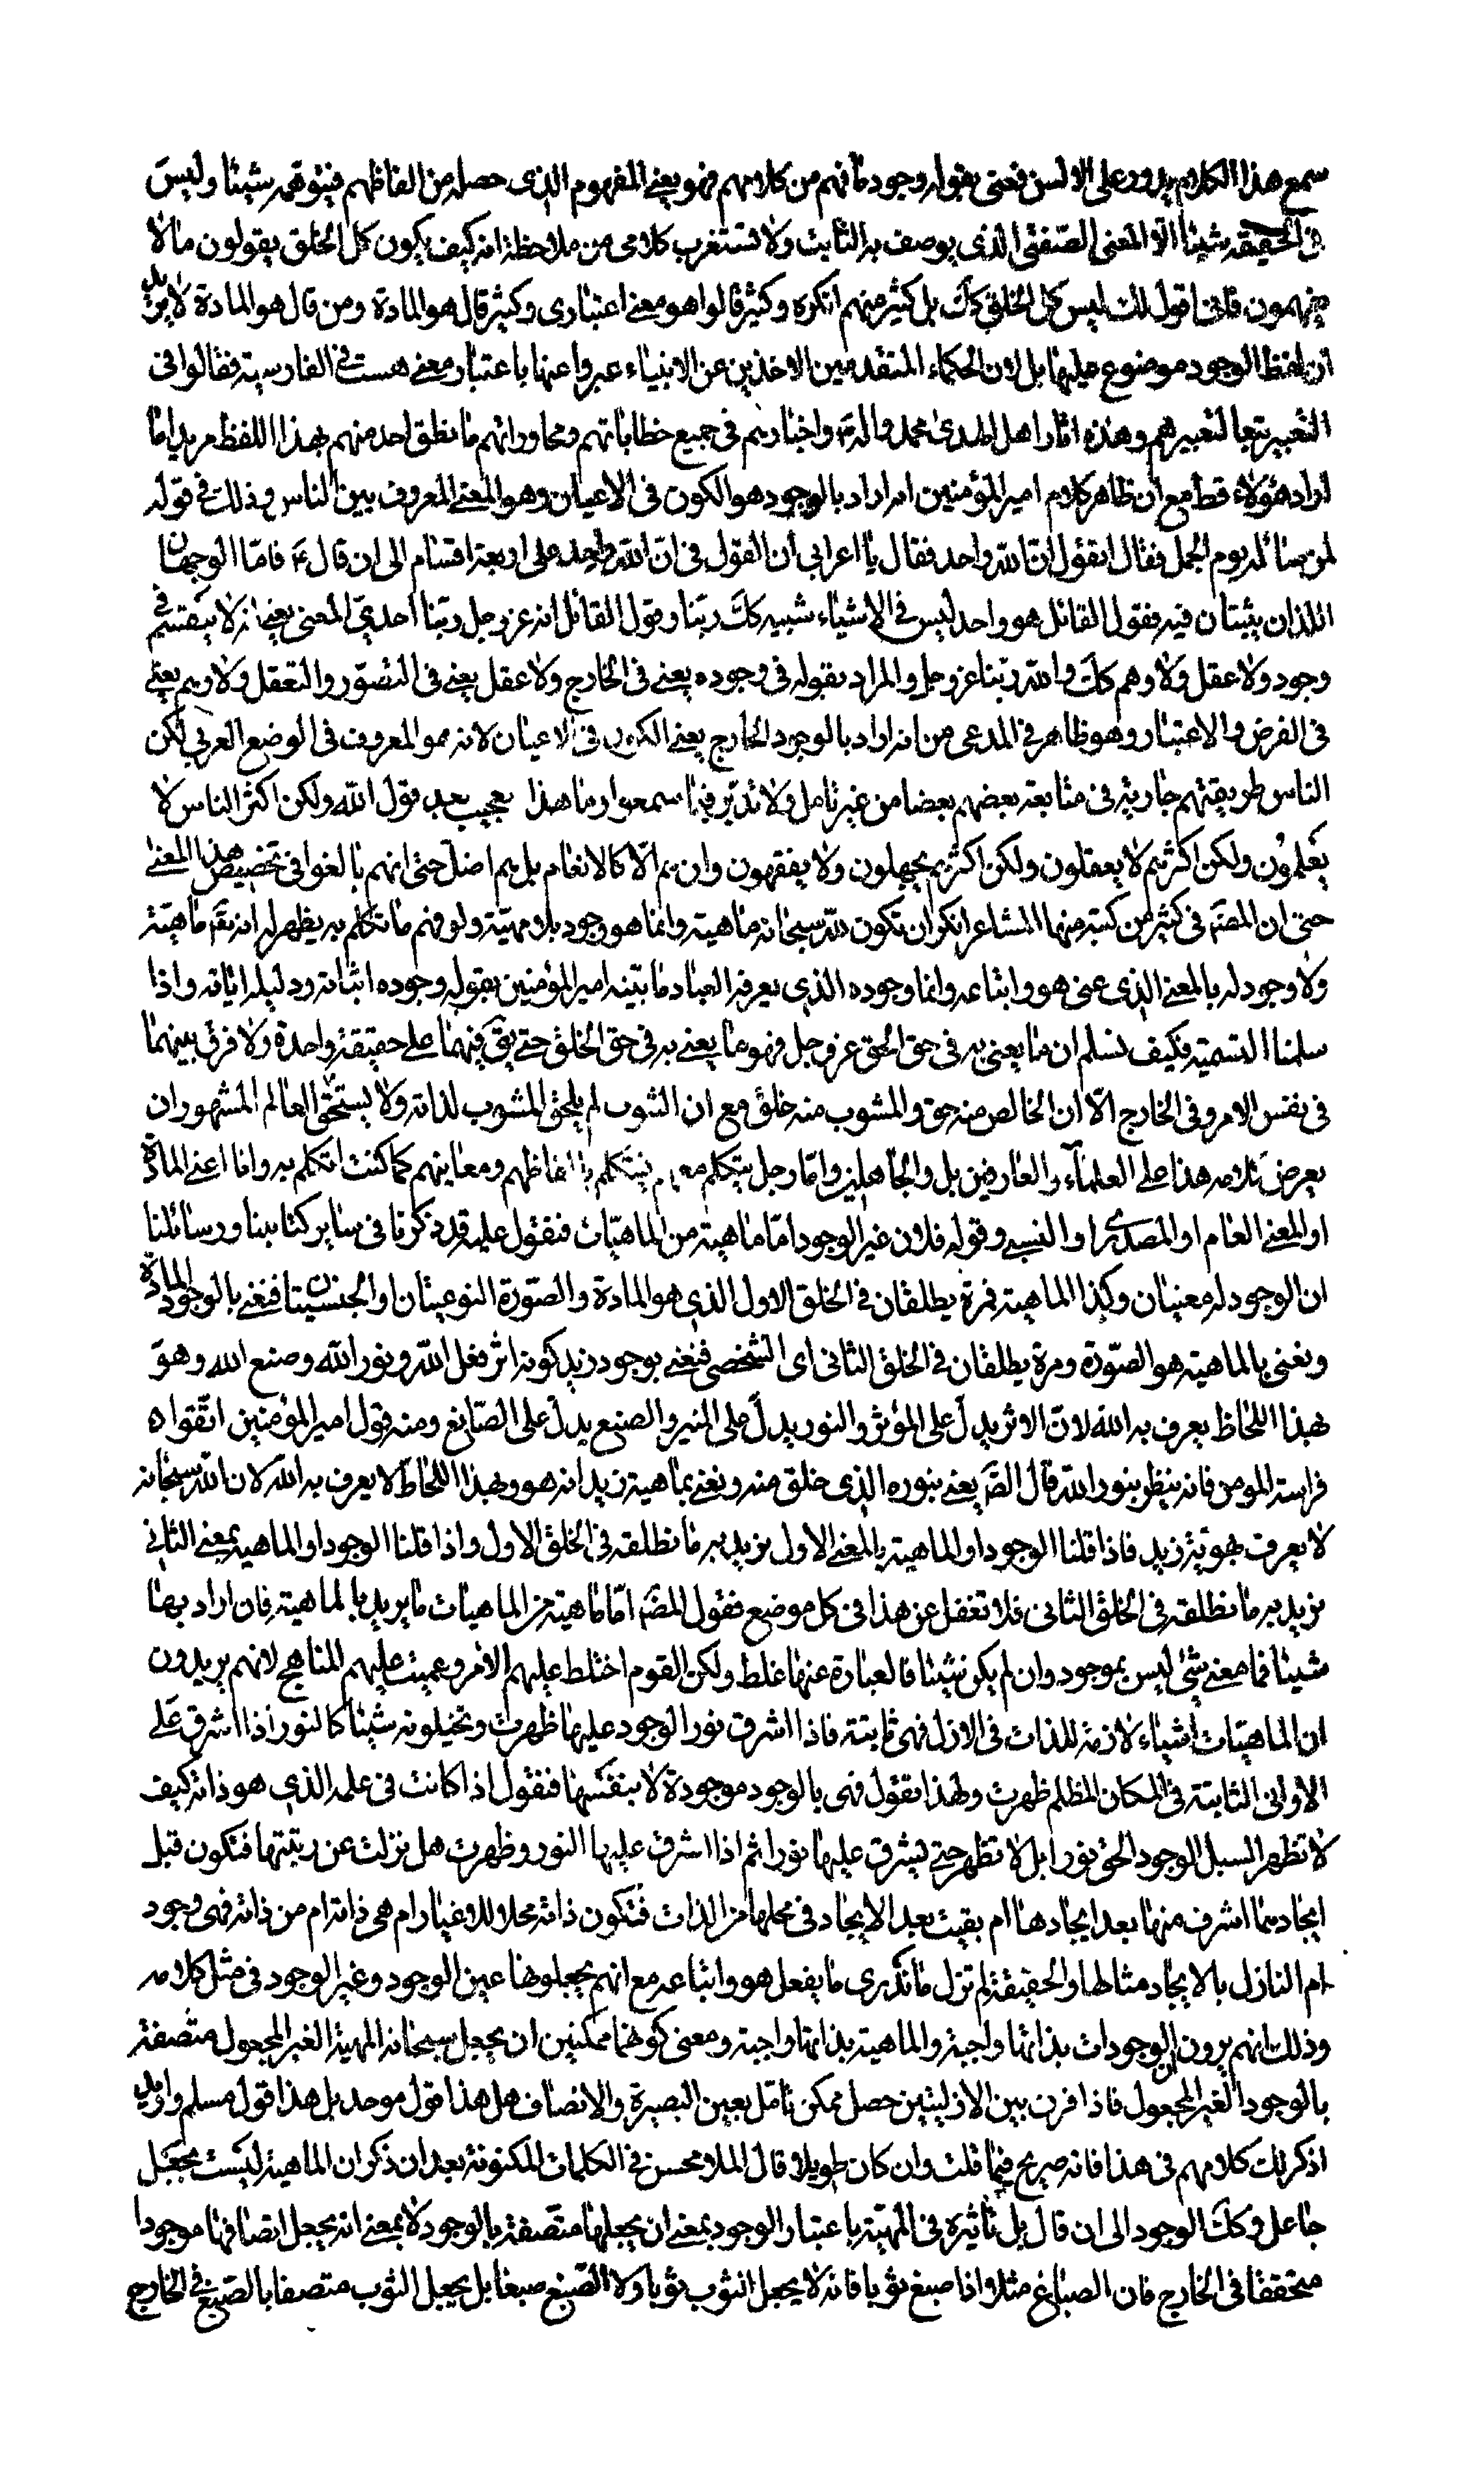 سمع هذا الكلام يدور على الالسن فعنى بقوله وجود ما فهم من كلامهم فهو يعنى المفهوم الذى حصله من الفاظهم فيتوهمه شيئا وليس
فى الحقيقة شيئا الا المعنى الصفتى الذى يوصف به الثابت ولا تستغرب كلامى من ملاحظة انه كيف يكون كل الخلق يقولون ما لا
يفهمون فانى اقول لك ليس كل الخلق كك بل كثير منهم انكره وكثير قالوا هو معنى اعتبارى وكثير قال هو المادة ومن قال هو المادة لا يريد
ان لفظ الوجود موضوع عليها بل لان الحكماء المتقدمين الاخذين عن الانبياء عبروا عنها باعتبار معنى هست فى الفارسية فقالوا فى
التعبير تبعا لتعبيرهم وهذه اثار اهل الهدى محمد وآله واخبارهم فى جميع خطاباتهم ومحاوراتهم ما نطق احد منهم بهذا اللفظ مريدا ما
اراد هؤلاء قط مع ان ظاهر كلام امير المؤمنين انه اراد بالوجود هو الكون فى الاعيان وهو المعنى المعروف بين الناس وذلك فى قوله
لمن سأله يوم الجمل فقال اتقول ان الله واحد فقال يا اعرابى ان القول فى ان الله واحد على اربعة اقسام الى ان قال ع فاما الوجهان
اللذان يثبتان فيه فقول القائل هو واحد ليس فى الاشياء شبيه كك ربنا وقول القائل انه عز وجل ربنا احدى المعنى يعنى انه لا ينقسم فى
وجود ولا عقل ولا وهم كك والله ربنا عز وجل والمراد بقوله فى وجوده يعنى فى الخارج ولا عقل يعنى فى التصور والتعقل ولا وهم يعنى
فى الفرض والاعتبار وهو ظاهر فى المدعى من انه اراد بالوجود الخارج يعنى الكون فى الاعيان لانه هو المعروف فى الوضع العربى لكن
الناس طريقتهم جارية فى متابعة بعضهم بعضا من غير تامل ولا تدبر فيما سمعوا وما هذا بعجيب بعد قول الله ولكن اكثر الناس لا
يعلمون ولكن اكثرهم لا يعقلون ولكن اكثرهم يجهلون ولا يفقهون وان هم الا كالانعام بل هم اضل حتى انهم بالغوا فى تخصيص هذا المعنى
حتى ان المصَ فى كثير من كتبه منها المشاعر انكر ان تكون لله سبحانه ماهية وانما هو وجود بلا مهية ولو فهم ما تكلم به يظهر له انه تعَ ماهية
ولا وجود له بالمعنى الذى عنى هو واتباعه وانما وجوده الذى يعرفه العباد ما بينه امير المؤمنين بقوله وجوده اثباته ودليله اياته واذا
سلمنا التسمية فكيف نسلم ان ما يعنى به فى حق الحق عز وجل فهو ما يعنى به فى حق الخلق حتى يق فيهما على حقيقة واحدة ولا فرق بينهما
فى نفس الامر وفى الخارج الا ان الخالص منه حق والمشوب منه خلق مع ان الشوب لم يلحق المشوب لذاته ولا يستحق العالم المشهور ان
يعرض كلامه هذا على العلماء والعارفين بل والجاهلين واما رجل يتكلم معهم فيتكلم بالفاظهم ومعانيهم كما كنت اتكلم به وانا اعنى المادة
او المعنى العام او المصدرى او النسبى وقوله فلان غير الوجود اما ماهية من الماهيات فنقول عليه قد ذكرنا فى ساير كتابنا ورسائلنا
ان الوجود له معنيان وكذا الماهية فمرة يطلقان فى الخلق الاول الذى هو المادة والصورة النوعيتان او الجنسيتان فنعنى بالوجود المادة
ونعنى بالماهية هو الصورة ومرة يطلقان فى الخلق الثانى اى الشخصى فنعنى بوجود زيد كونه اثر فعل الله ونور الله وصنع الله وهو
بهذا اللحاظ يعرف به الله لان الاثر يدل على المؤثر والنور يدل على المنير والصنع يدل على الصانع ومنه قول امير المؤمنين اتقوا
فراسة المومن فانه ينظر بنور الله قال الصَ يعنى بنوره الذى خلق منه ونعنى بماهية زيد انه هو وبهذا اللحاظ لا يعرف به الله لان الله سبحانه
لا يعرف بهوية زيد فاذا قلنا الوجود او الماهية بالمعنى الاول نريد به ما نطلقه فى الخلق الاول واذا قلنا الوجود او الماهية بمعنى الثانى
نريد به ما نطلقه فى الخلق الثانى فلا تغفل عن هذا فى كل موضع فقول المصَ اما ماهية من الماهيات ما يريد بالماهية فان اراد بها
شيئا فما معنى شئ ليس بموجود وان لم يكن شيئا فالعبارة عنها غلط ولكن القوم اختلط عليهم الامر وعميت عليهم المناهج لانهم يريدون
ان الماهيات اشياء لازمة للذات فى الازل فهى ثابتة فاذا اشرق نور الوجود عليها ظهرت وتخيلونه شيئا كالنور اذا اشرق على
الاوانى الثابتة فى المكان المظلم ظهرت ولهذا تقول فهى بالوجود موجودة لا بنفسها فنقول اذا كانت فى علمه الذى هو ذاته كيف
لا تظهر اليس الوجود الحق نورا بل لا تظهر حتى يشرق عليها نورا ثم اذا اشرق عليها النور وظهرت هل نزلت عن رتبتها فتكون قبل
ايجادها اشرف منها بعد ايجادها ام بقيت بعد الايجاد فى محلها من الذات فتكون ذاته محلا للاغيار ام هى ذاته ام من ذاته فهى وجود
ام النازل بالايجاد مثالها والحقيقة لم تزل ما ندرى ما يفعل هو واتباعه مع انهم يجعلونها عين الوجود وغير الوجود فى مثل كلامه
وذلك انهم يرون ان الوجودات بذاتها واجبة والماهية بذاتها واجبة ومعنى كونهما ممكنين ان يجعل سبحانه المهية الغير المجعول متصفة
بالوجود الغير المجعول فاذا قرن بين الازليتين حصل ممكن تامل بعين البصيرة والانصاف هل هذا قول موحد بل هذا قول مسلم وانا اريد
اذكر لك كلامهم فى هذا فانه صريح فيما قلت وان كان طويلا قال الملا محسن فى الكلمات المكنونة بعد ان ذكر ان الماهية ليست بجعل
جاعل وكك الوجود الى ان قال بل تاثيره فى المهية باعتبار الوجود بمعنى ان يجعلها متصفة بالوجود لا بمعنى انه يجعل اتصافها موجودا
متحققا فى الخارج فان الصباغ مثلا اذا صبغ ثوبا فانه لا يجعل الثوب ثوبا ولا الصبغ صبغا بل يجعل الثوب متصفا بالصبغ فى الخارج